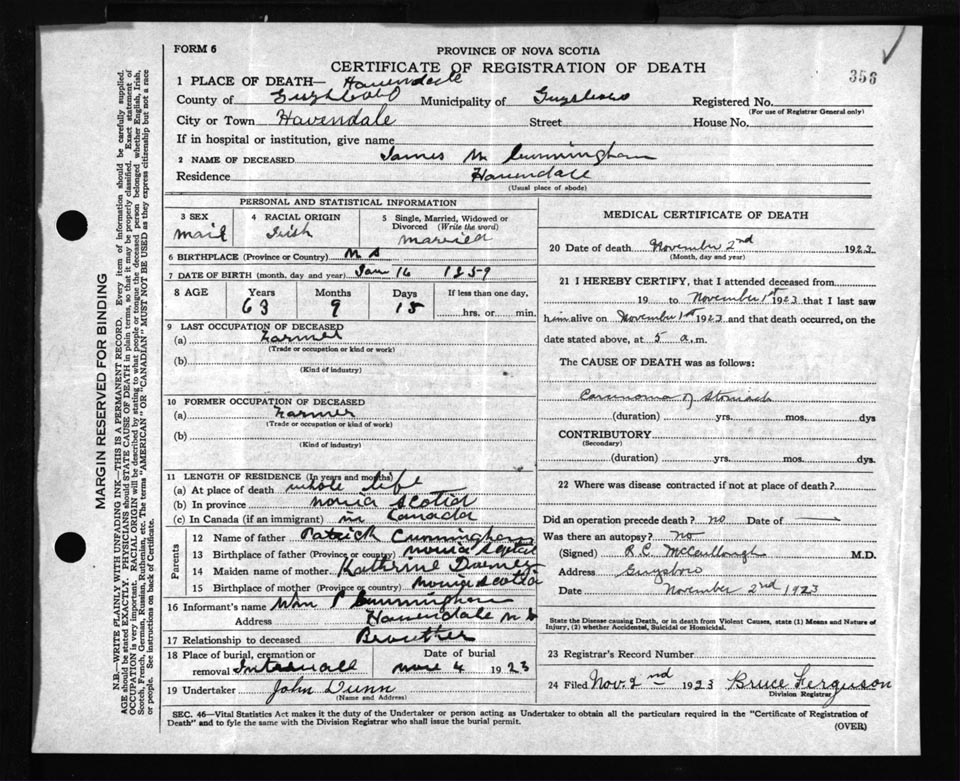 FORM 6
PROVINCE OF NOVA SCOTIA
CERTIFICATE OF REGISTRATION OF DEATH
356
1 PLACE OF DEATH— Havendale
County of Guysboro Municipality of Guysboro Registered No.
(For use of Registrar General only)
City or Town Havendale Street House No.
If in hospital or institution, give name
2 NAME OF DECEASED James M Cunningham
Residence Havendale
(Usual place of abode)
PERSONAL AND STATISTICAL INFORMATION
3 SEX
mail
4 RACIAL ORIGIN
Irish
5 Single, Married, Widowed or
Divorced (Write the word)
married
6 BIRTHPLACE (Province or Country) N S
7 DATE OF BIRTH (month, day and year) Jan 16 1859
8 AGE Years Months Days If less than one day.
63 9 15 hrs. or min.
9 LAST OCCUPATION OF DECEASED
(a) Farmer
(Trade or occupation or kind or work)
(b)
(Kind of industry)
10 FORMER OCCUPATION OF DECEASED
(a) Farmer
(Trade or occupation or kind of work)
(b)
(Kind of industry)
11 LENGTH OF RESIDENCE (In years and months)
(a) At place of death whole life
(b) In province novia scotia
(c) In Canada (if an immigrant) in Canada
Parents
12 Name of father Patrick Cunningham
13 Birthplace of father (Province or country) novia
14 Maiden name of mother Katherine
15 Birthplace of mother (Province or country) novia scotia
16 Informant's name Wm P Cunningham
Address Havendale N S
17 Relationship to deceased Brouther
18 Place of burial, cremation or
removal Intervale
Date of burial
nove 4 1923
19 Undertaker John Dunn
(Name and Address)
MEDICAL CERTIFICATE OF DEATH
20 Date of death November 2nd 1923
(Month, day and year)
21 I HEREBY CERTIFY, that I attended deceased from
19 to November 1st 1923 that I last saw
him alive on November 1st 1923 and that death occurred, on the
date stated above, at 5 a.m.
The CAUSE OF DEATH was as follows:
Carcinoma of Stomach
(duration) yrs. mos. dys
CONTRIBUTORY
(Secondary)
(duration) yrs. mos. dys.
22 Where was disease contracted if not at place of death?
Did an operation precede death? no Date of —
Was there an autopsy? no
(Signed) R.C. McCullough M.D.
Address Guysboro
Date November 2nd 1923
State the Disease causing Death, or in death from Violent Causes, state (1) Means and Nature of
Injury, (2) whether Accidental, Suicidal or Homicidal.
23 Registrar's Record Number
24 Filed Nov. 2nd 1923 Bruce Ferguson
Division Registrar
SEC. 46—Vital Statistics Act makes it the duty of the Undertaker or person acting as Undertaker to obtain all the particulars required in the "Certificate of Registration of
Death" and to fyle the same with the Division Registrar who shall issue the burial permit.
(OVER)
MARGIN RESERVED FOR BINDING
N.B.—WRITE PLAINLY WITH UNFADING INK—THIS IS A PERMANENT RECORD. Every item of information should be carefully supplied.
AGE should be stated EXACTLY. PHYSICIANS should STATE CAUSE OF DEATH in plain terms, so that it may be properly classified. Exact statement of
OCCUPATION is very important. RACIAL ORIGIN will be described by stating to what people or tongue the deceased person belonged whether English, Irish,
Scotch, French, German, Russian, Ruthenian, etc. The terms "AMERICAN" OR "CANADIAN" MUST NOT BE USED as they express citizenship but not a race
or people. See instructions on back of Certificate.